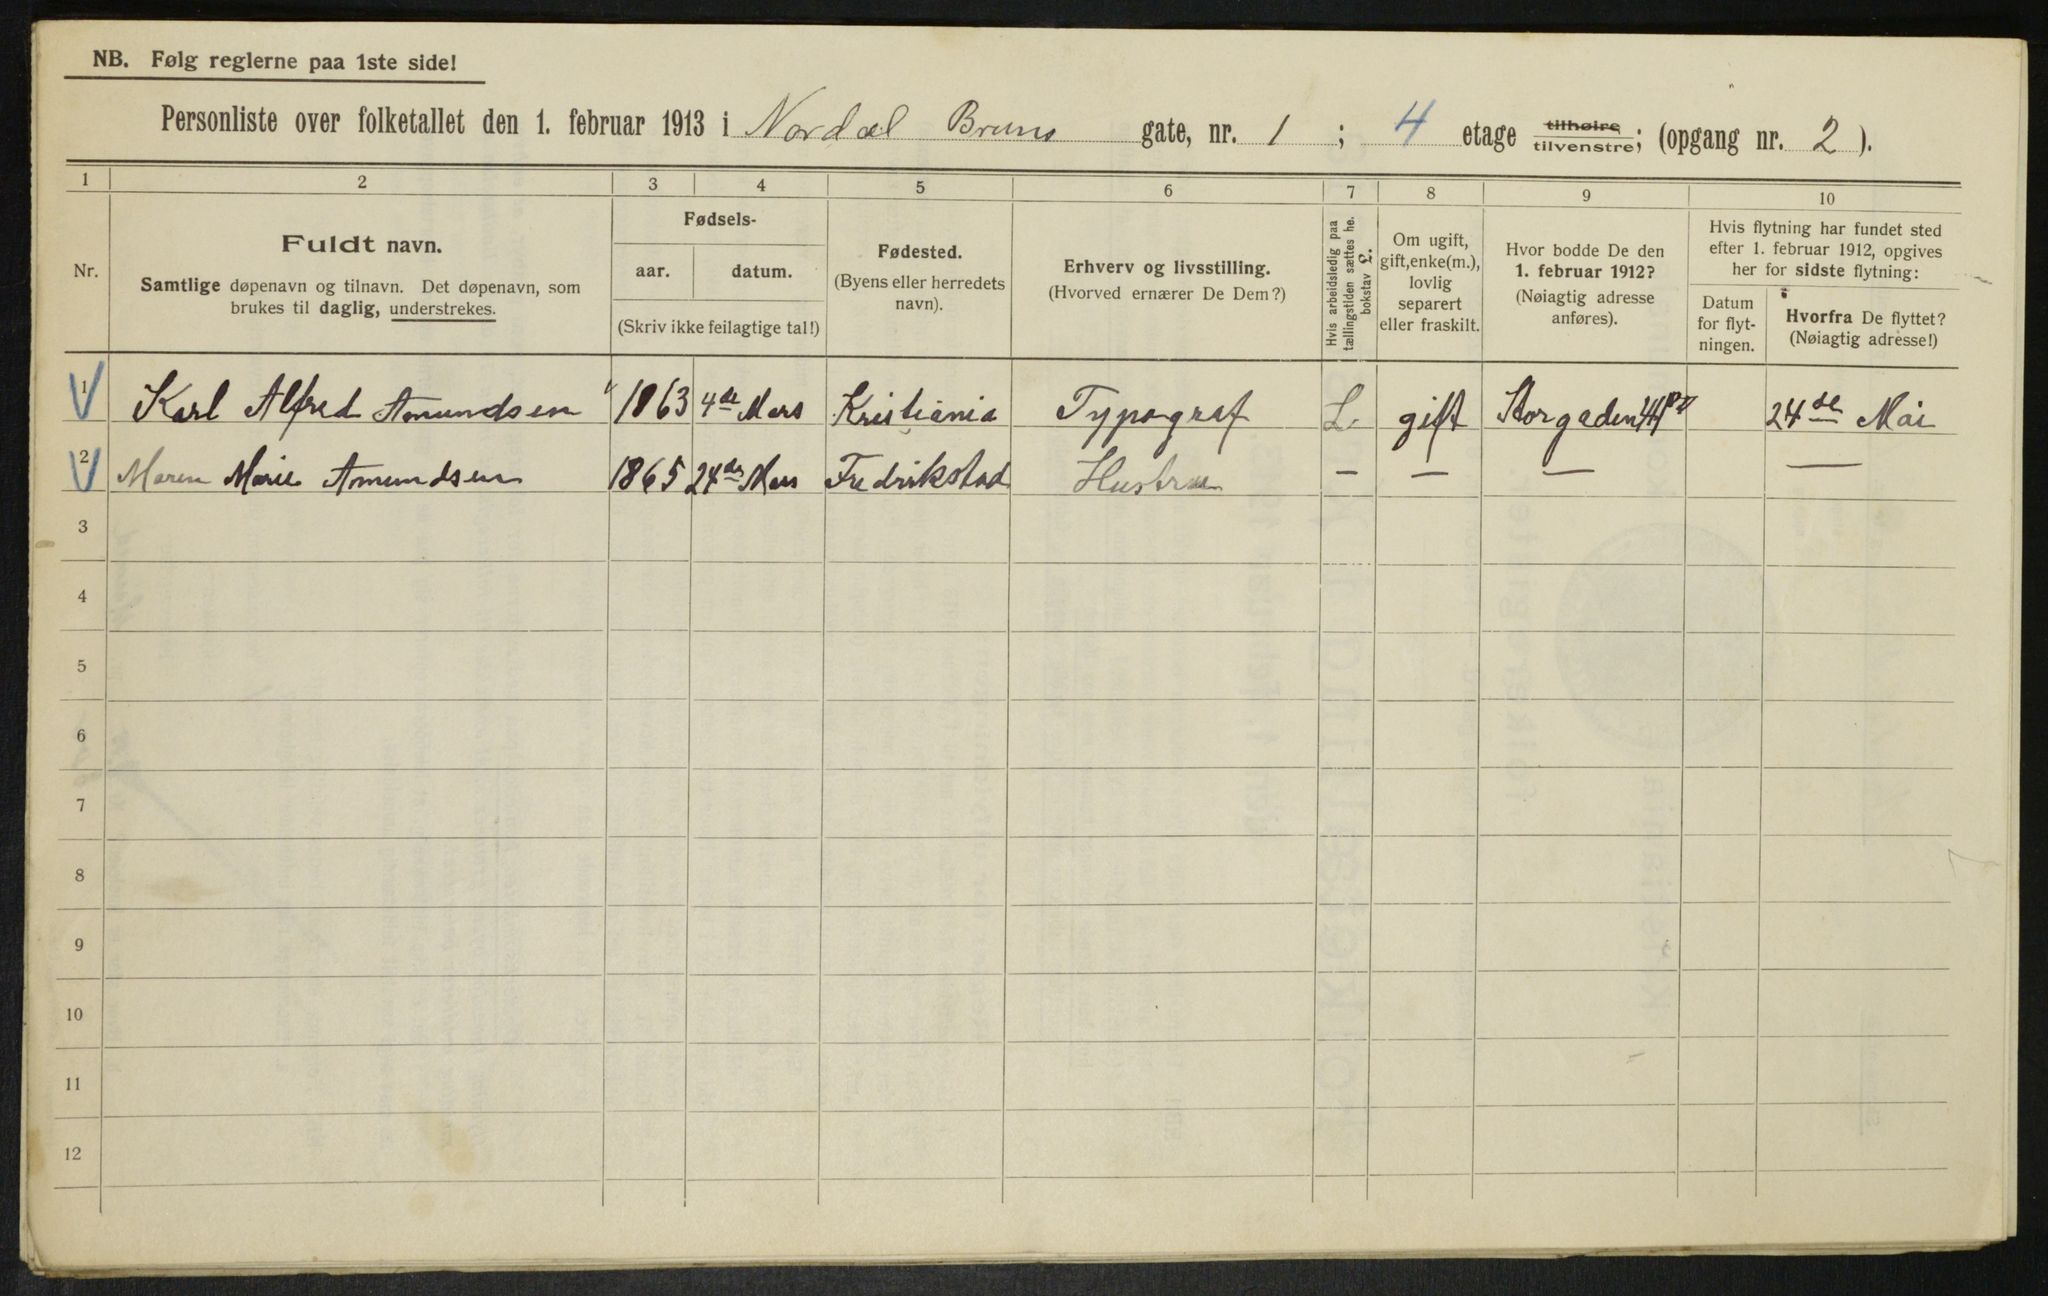 NB. Følg reglerne paa 1ste side!
Personliste over folketallet den 1. februar 1913 i Nordal Bruns gate, nr. 1 ; 4 etage tilhøire tilvenstre; (opgang nr. 2 ).
1 2 3 4 5 6 7 8 9 10
Nr.
Fuldt navn.
Samtlige døpenavn og tilnavn. Det døpenavn, som
brukes til daglig, understrekes.
Fødsels-
aar. datum.
(Skriv ikke feilagtige tal!)
Fødested.
(Byens eller herredets
navn).
Erhverv og livsstilling.
(Hvorved ernærer De Dem?)
Hvis arbeidsledig paa
tællingstiden sættes her
bokstav L.
Om ugift,
gift, enke(m.),
lovlig
separert
eller fraskilt.
Hvor bodde De den
1. februar 1912?
(Nøiagtig adresse
anføres).
Hvis flytning har fundet sted
efter 1. februar 1912, opgives
her for sidste flytning:
Datum
for flyt-
ningen.
Hvorfra De flyttet?
(Nøiagtig adresse!)
1 Karl Alfred Amundsen 1863 4de Mars Kristiania Typograf L. gift Storgaden 24de Mai
2 Maren Marie Amundsen 1865 24de Mars Fredrikstad Hustru — — — —
3
4
5
6
7
8
9
10
11
12